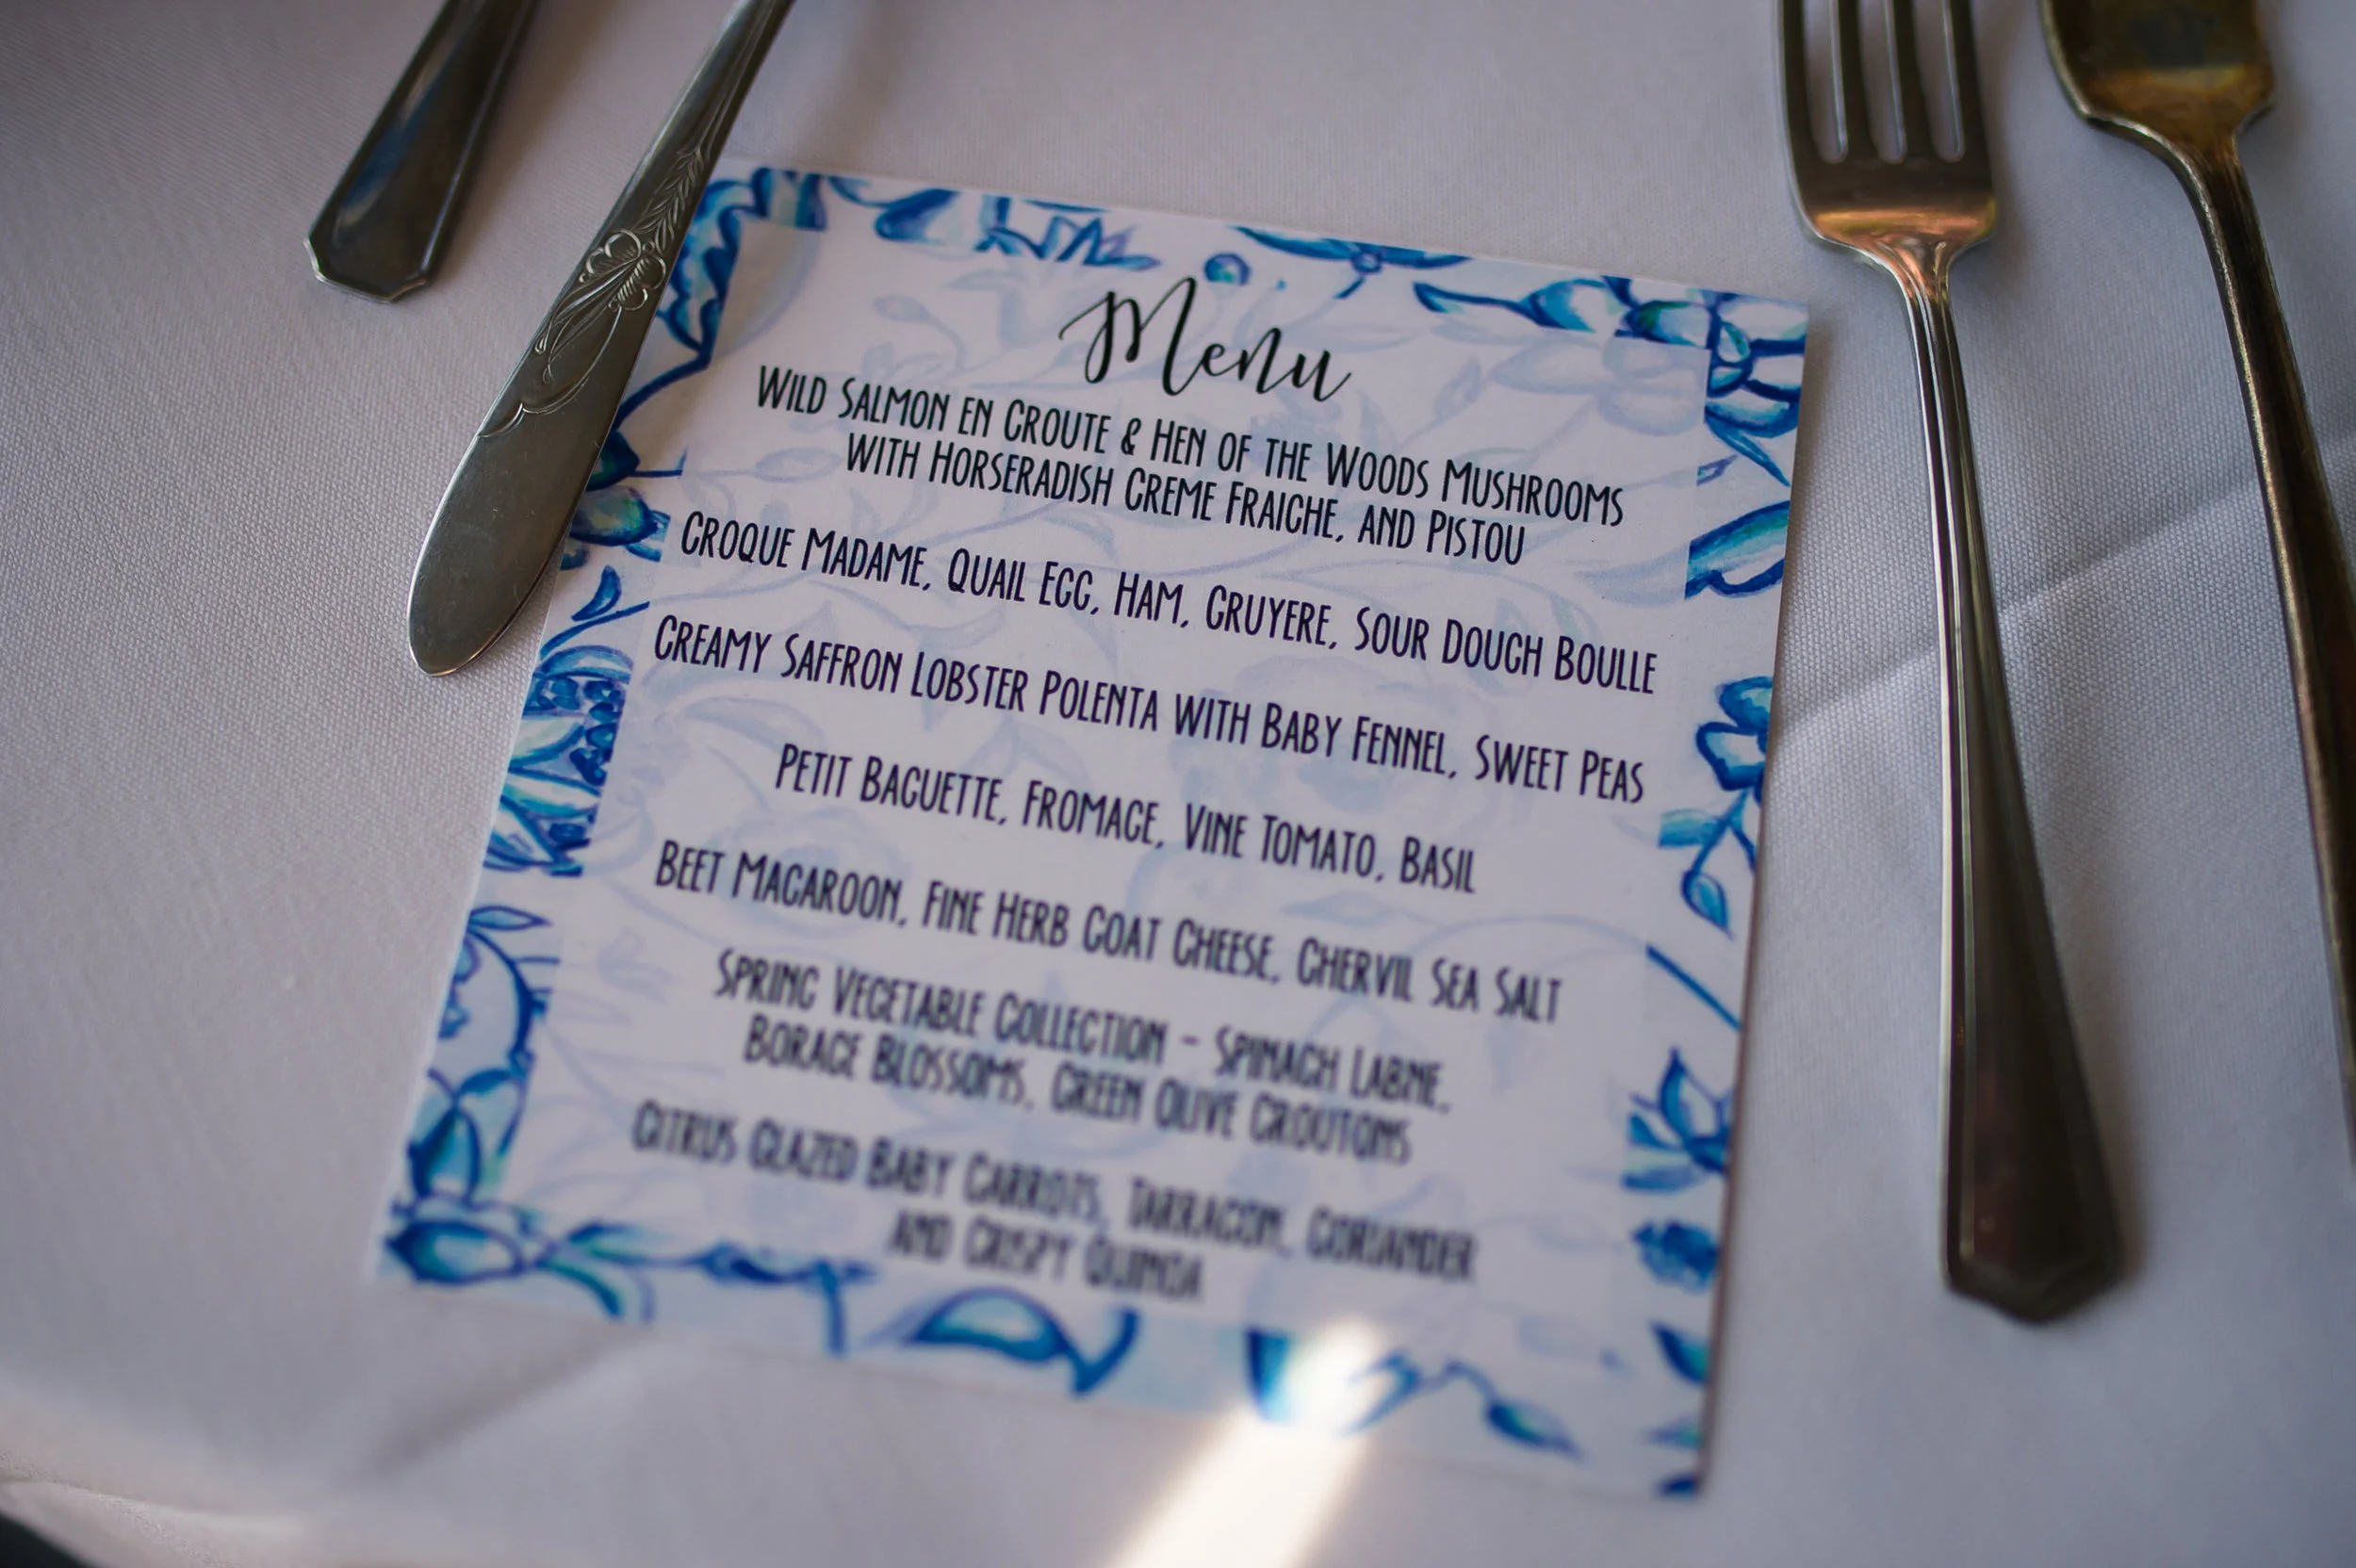 Menu
Wild Salmon en Croute & Hen of the Woods Mushrooms
with Horseradish Creme Fraiche, and Pistou
Croque Madame, Quail Egg, Ham, Gruyere, Sour Dough Boulle
Creamy Saffron Lobster Polenta with Baby Fennel, Sweet Peas
Petit Baguette, Fromage, Vine Tomato, Basil
Beet Macaroon, Fine Herb Goat Cheese, Chervil Sea Salt
Spring Vegetable Collection - Spinach Labne,
Borage Blossoms, Green Olive Croutons
Citrus Glazed Baby Carrots, Tarragon, Coriander
and Crispy Quinoa